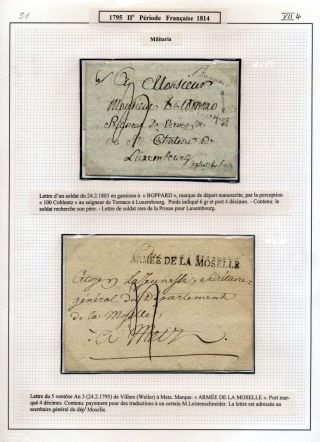 51
1795 IIe Période Française 1814
VII 4
Militaria
Monsieur
Monsieur
Seigneur de
Chateau de
Luxembourg
Lettre d'un soldat du 24.2.1803 en garnison à « BOPPARD », marque de départ manuscrite, par la perception
« 100 Coblentz » au seigneur de Tornaco à Luxembourg. Poids indiqué 6 gr et port 4 décimes. - Contenu: le
le soldat recherche son père. - Lettre de soldat rare de la Prusse pour Luxembourg.
ARMÉE DE LA MOSELLE
Citoyen Lajeunesse, Secrétaire-
général du Département
de la Moselle,
à Metz
Lettre du 5 ventôse An 3 (24.2.1795) de Villers (Weiler) à Metz. Marque: « ARMÉE DE LA MOSELLE ». Port mar-
qué 4 décimes. Contenu: payement pour des traductions à un certain M.Leistenschneider. La lettre est adressée au
secrétaire général du dépt Moselle.